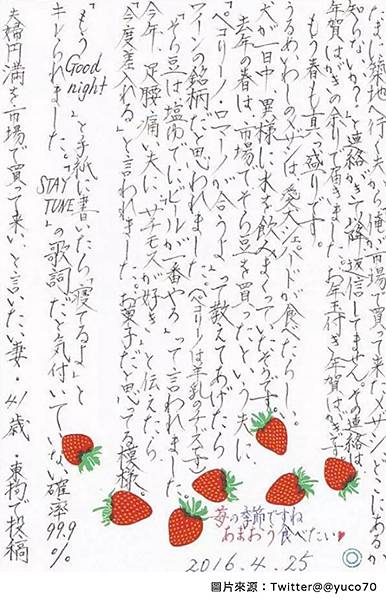 たまに築地へ行く夫から「俺が市場で買って来たメザシ、どこにあるか
知らないか?」と連絡がきて以降、返信してません。その連絡は
年賀はがきの余りで届きました。お年玉付き年賀はがきです。
もう春も真っ盛りです。
うるめいわしのメザシは愛犬シェパードが食べたらしい。
犬が一日中、異様に水を飲みまくっていたそうです。
去年の春は、市場でそら豆を買ったという夫に
「ペコリーノ・ロマーノが合うよ」って教えてあげたら
ワインの銘柄だと思われました。(ペコリーノは羊乳のチーズです)
「そら豆は塩ゆで!ビールが一番やろ」って言われました。
今年、足腰痛い夫に「サチモスが好き」と伝えたら
「今度差し入れる」と言われました。お菓子だと思ってる模様。
「もう Good night」と手紙に書いたら「寝てるよ」と
キレられました。「STAY TUNE」の歌詞だと気付いていない確率99.9%
夫婦円満を市場で買って来い、と言いたい妻・41歳・東拘で投稿
苺の季節ですね
あまおう食べたい♥
2016.4.25
圖片來源:Twitter@@yuco70